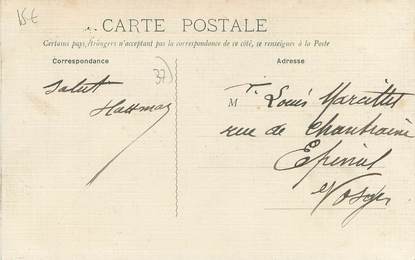 15€
CARTE POSTALE
Certains pays étrangers n'acceptant pas la correspondance de ce côté, se renseigner à la Poste
Correspondance
Adresse
37
Salut
M Louis
rue de Chantraine
Epinal
Vosges